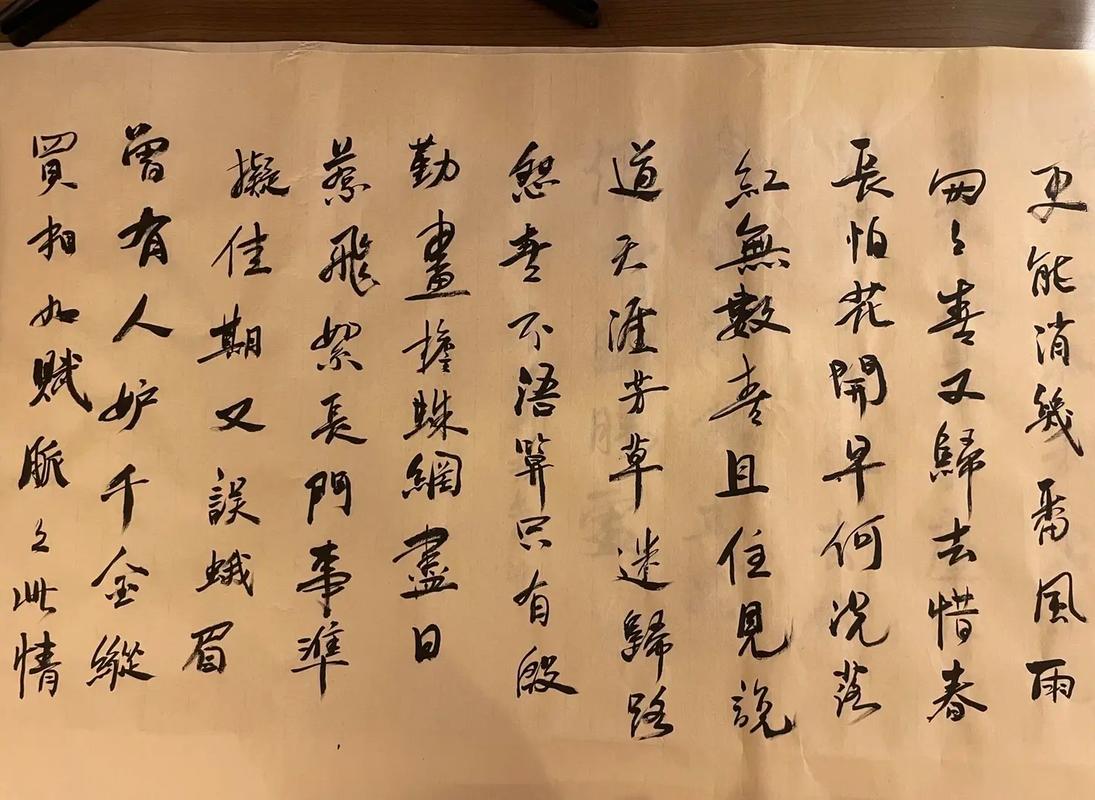 更能消幾番風雨
匆〻春又歸去惜春
長怕花開早何況落
紅無數春且住見說
道天涯芳草迷歸路
怨春不語算只有殷
勤畫檐蛛網盡日
惹飛絮長門事準
擬佳期又誤蛾眉
曾有人妒千金縱
買相如賦脈〻此情